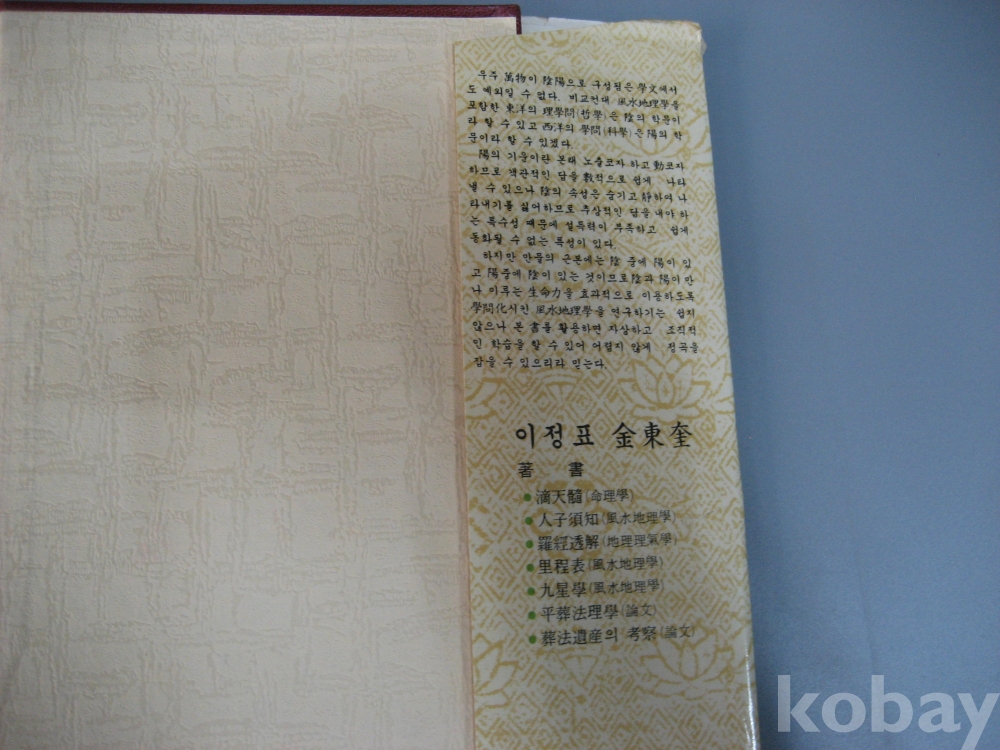 우주 萬物이 陰陽으로 구성됨은 學文에서
도 예외일 수 없다. 비교컨대 風水地理學을
포함한 東洋의 理學問(哲學)은 陰의 학문이
라 할 수 있고 西洋의 學問(科學)은 陽의 학
문이라 할 수 있겠다.
陽의 기운이란 본래 노출코자 하고 動코자
하므로 객관적인 답을 數적으로 쉽게 나타
낼 수 있으나 陰의 속성은 숨기고 靜하여 나
타내기를 싫어하므로 추상적인 답을 내야 하
는 특수성 때문에 설득력이 부족하고 쉽게
동화될 수 없는 특성이 있다.
하지만 만물의 근본에는 陰 중에 陽이 있
고 陽중에 陰이 있는 것이므로 陰과 陽이 만
나 이루는 生命力을 효과적으로 이용하도록
學問化시킨 風水地理學을 연구하기는 쉽지
않으나 본 書를 활용하면 자상하고 조직적
인 학습을 할 수 있어 어렵지 않게 정곡을
잡을 수 있으리라 믿는다.
이정표 金東奎
著 書
● 滴天髓(命理學)
● 人子須知(風水地理學)
● 羅經透解(地理理氣學)
● 里程表(風水地理學)
● 九星學(風水地理學)
● 平葬法理學(論文)
● 葬法遺産의 考察(論文)
kobay